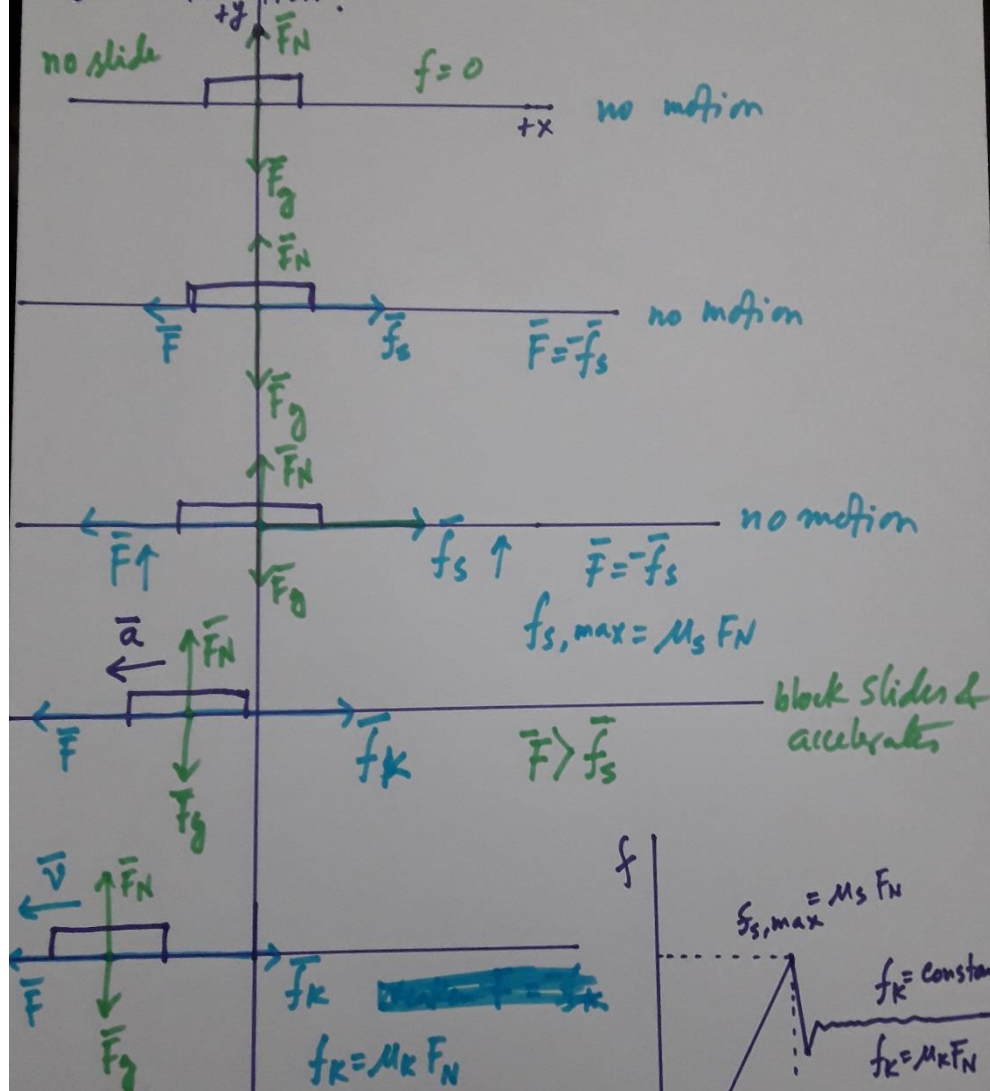 +y
F̄N
no slide
f = 0
+x
no motion
F̄g
F̄N
F̄
f̄s
no motion
F̄ = -f̄s
F̄g
F̄N
F̄↑
f̄s ↑
no motion
F̄ = -f̄s
F̄g
fs,max = μs FN
ā
F̄N
F̄
f̄k
F̄ > f̄s
block slides &
accelerates
F̄g
v̄
F̄N
F̄
f̄k
F̄g
fk = μk FN
f
fs,max = μs FN
fk = constan
fk = μk FN